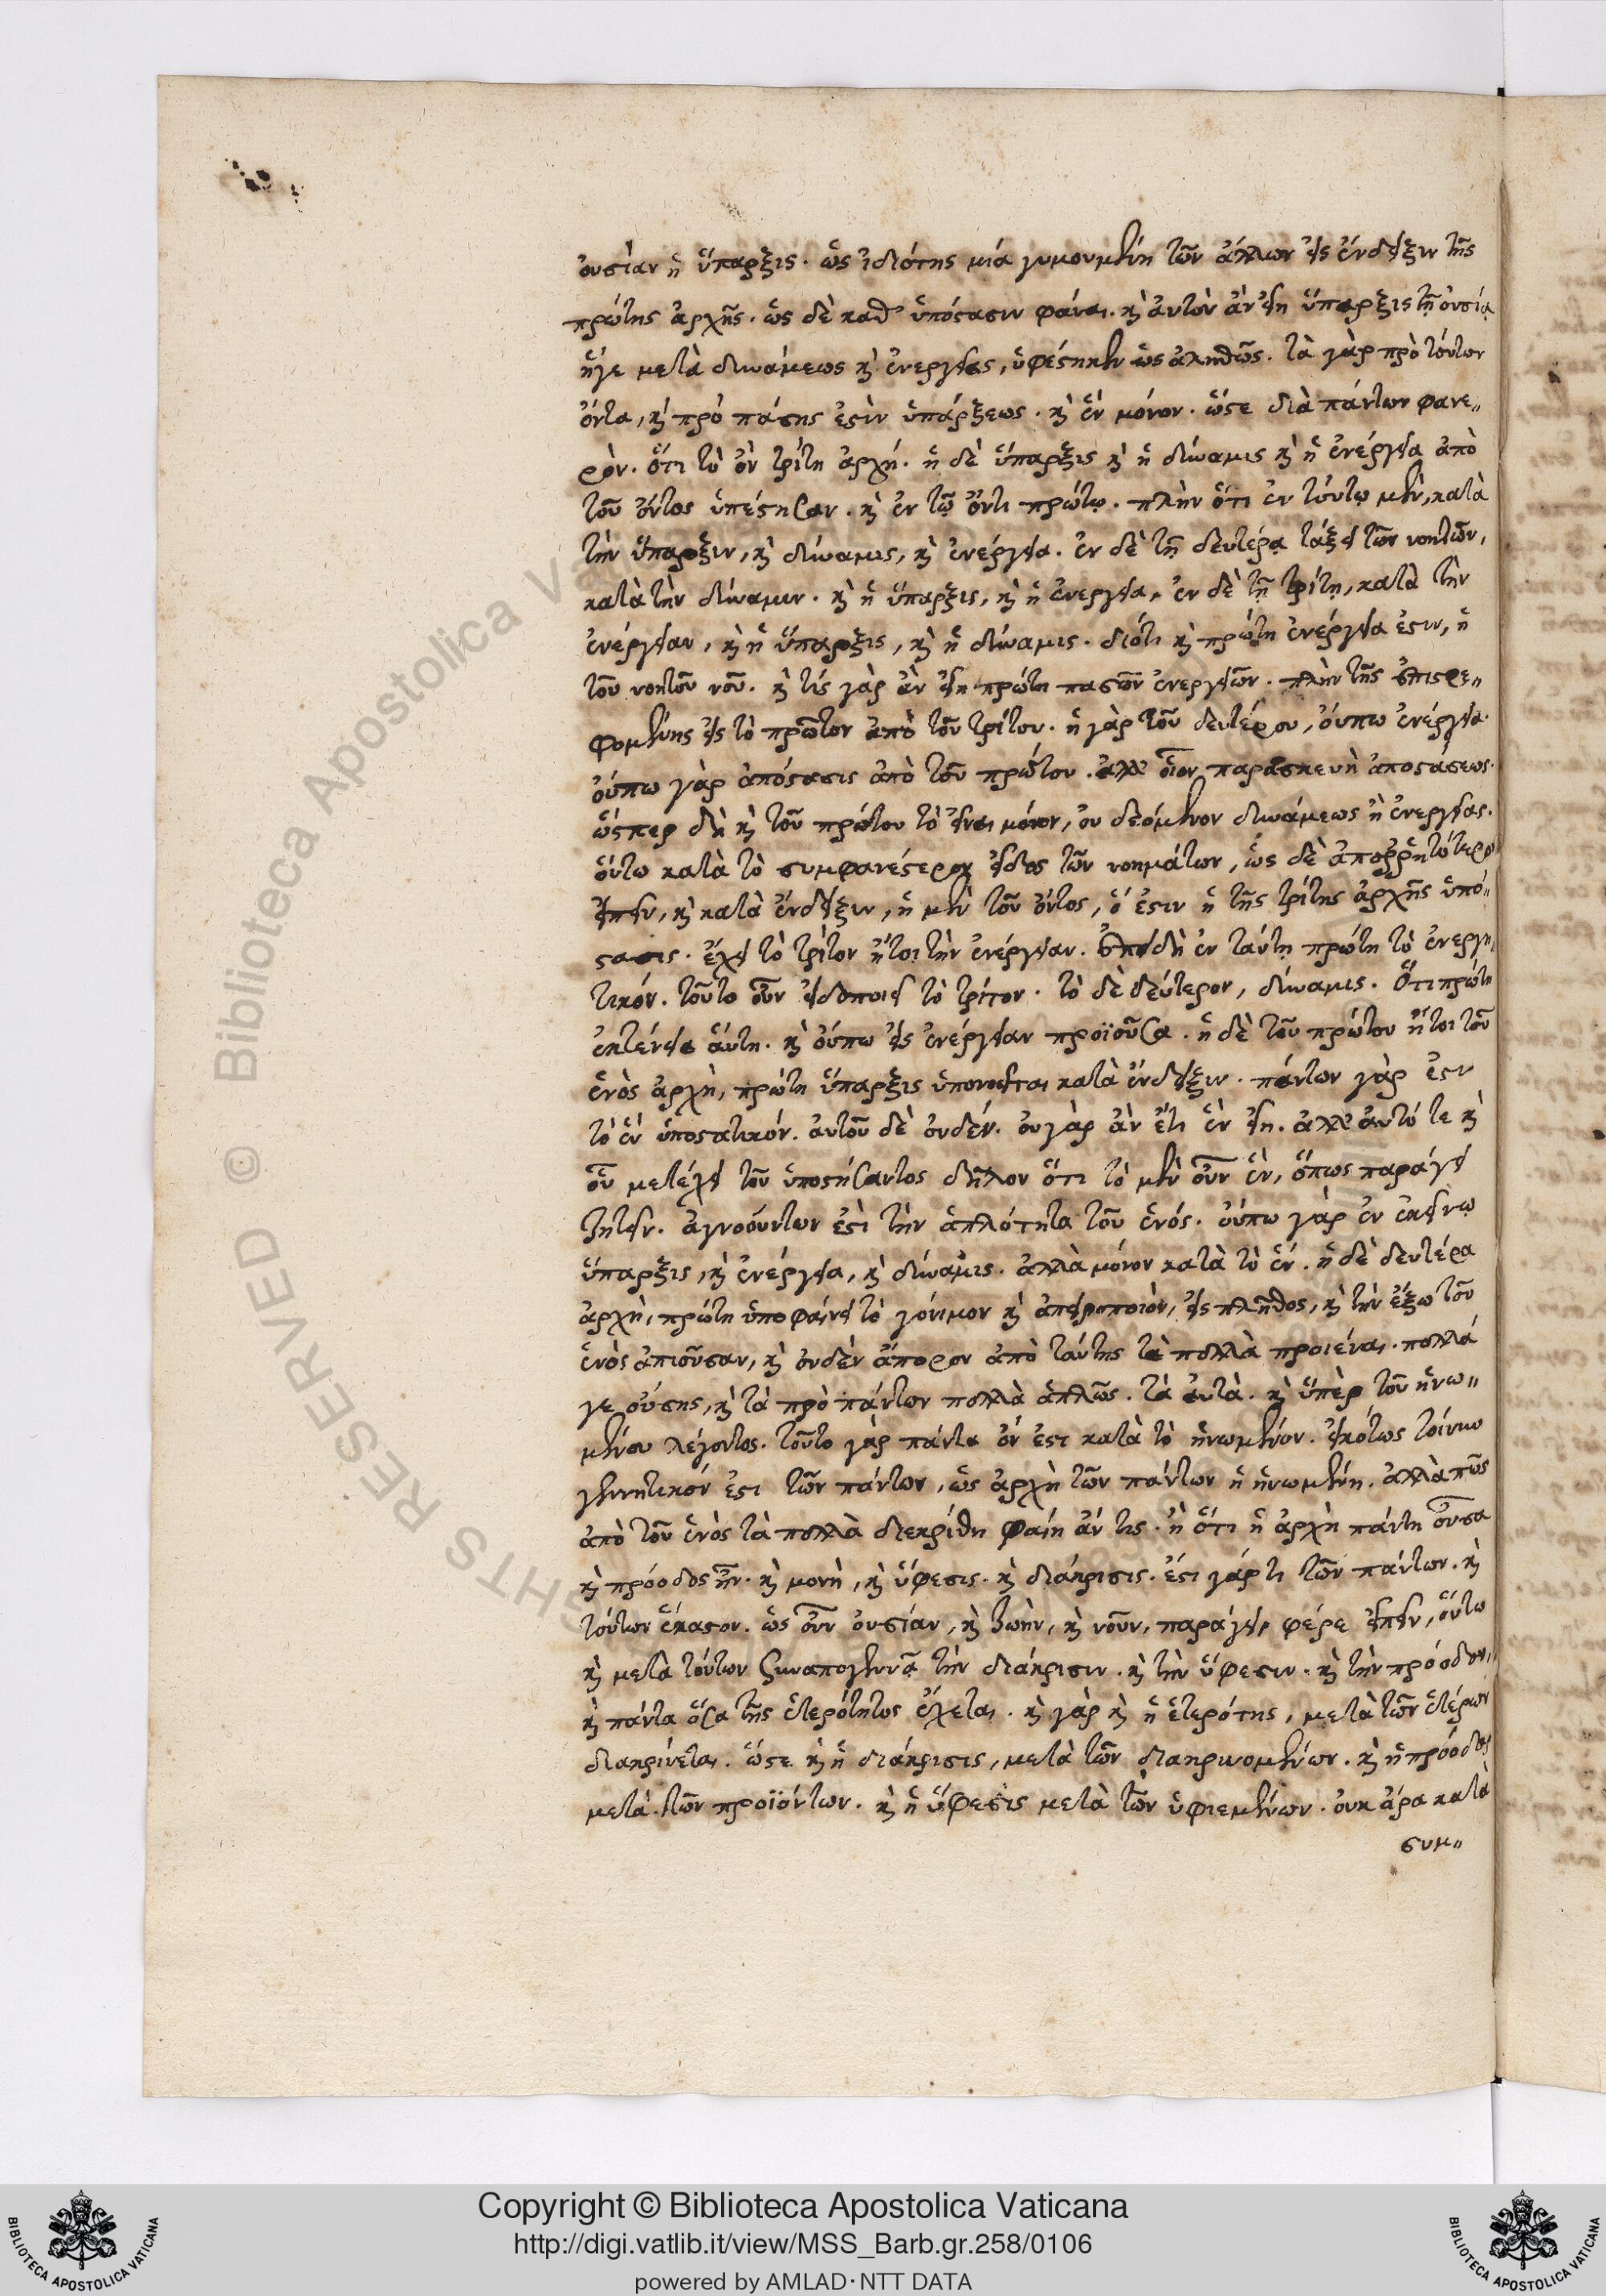 οὐσίαν ἡ ὕπαρξις. ὡς ἰδιότης μία γυμνουμένη τῶν ἄλλων εἰς ἔνδειξιν τῆς
πρώτης ἀρχῆς. ὡς δὲ καθ' ὑπόστασιν φάναι. καὶ αὐτὸν ἂν εἴη ὕπαρξις τῇ οὐσίᾳ
ἥγε μετὰ δυνάμεως καὶ ἐνεργείας, ὑφέστηκεν ὡς ἀληθῶς. τὰ γὰρ πρὸ τούτων
ὄντα, καὶ πρὸ πάσης ἐστὶν ὑπάρξεως. καὶ ἓν μόνον. ὥστε διὰ πάντων φανε„
ρὸν. ὅτι τὸ ὂν τρίτη ἀρχή. ἡ δὲ ὕπαρξις καὶ ἡ δύναμις καὶ ἡ ἐνέργεια ἀπὸ
τοῦ ὄντος ὑπέστησαν. καὶ ἐν τῷ ὄντι πρώτῳ. πλὴν ὅτι ἐν τούτῳ μὲν, κατὰ
τὴν ὕπαρξιν, καὶ δύναμις, καὶ ἐνέργεια. ἐν δὲ τῇ δευτέρᾳ τάξει τῶν νοητῶν,
κατὰ τὴν δύναμιν. καὶ ἡ ὕπαρξις, καὶ ἡ ἐνεργεία, ἐν δὲ τῇ τρίτῃ, κατὰ τὴν
ἐνέργειαν, καὶ ἡ ὕπαρξις, καὶ ἡ δύναμις. διότι καὶ πρώτη ἐνέργεια ἐστιν, ἡ
τοῦ νοητοῦ νοῦ. καὶ τίς γὰρ ἂν εἴη πρώτη πασῶν ἐνεργειῶν. πλὴν τῆς ἐπιστρε„
φομένης εἰς τὸ πρῶτον ἀπὸ τοῦ τρίτου. ἡ γὰρ τοῦ δευτέρου, οὔπω ἐνέργεια.
οὔπω γὰρ ἀπόστασις ἀπὸ τοῦ πρώτου. ἀλλ' οἷον παρασκευὴ ἀποστάσεως.
ὥσπερ δὴ καὶ τοῦ πρώτου τὸ εἶναι μόνον, οὐ δεόμενον δυνάμεως ἢ ἐνεργείας.
οὕτω κατὰ τὸ συμφανέστερον εἶδος τῶν νοημάτων, ὡς δὲ ἀπορρητότερον
εἰπεῖν, καὶ κατὰ ἔνδειξιν, ἡ μὲν τοῦ ὄντος, ὅ ἐστιν ἡ τῆς τρίτης ἀρχῆς ὑπό„
στασις. ἔχει τὸ τρίτον ἤτοι τὴν ἐνέργειαν. ἐπειδὴ ἐν ταύτῃ πρώτη τὸ ἐνεργη„
τικόν. τοῦτο οὖν εἰδοποιεῖ τὸ τρίτον. τὸ δὲ δεύτερον, δύναμις. Ὅτι πρώτη
ἐκτένεια αὕτη. καὶ οὔπω εἰς ἐνέργειαν προϊοῦσα. ἡ δὲ τοῦ πρώτου ἤτοι τοῦ
ἑνὸς ἀρχὴ, πρώτη ὕπαρξις ὑπονοεῖται κατὰ ἔνδειξιν. πάντων γὰρ ἐστι
τὸ ἓν ὑποστατικόν. αὐτοῦ δὲ οὐδέν. οὐ γὰρ ἂν ἔτι ἓν εἴη. ἀλλ' αὐτό τε καὶ
οὗ μετέχει τοῦ ὑποστήσαντος δῆλον ὅτι τὸ μὲν οὖν ἓν, ὅπως παράγει
ζητεῖν. ἀγνοούντων ἐστὶ τὴν ἁπλότητα τοῦ ἑνός. οὔπω γὰρ ἐν ἐκείνῳ
ὕπαρξις, καὶ ἐνέργεια, καὶ δύναμις. ἀλλὰ μόνον κατὰ τὸ ἕν. ἡ δὲ δευτέρα
ἀρχὴ, πρώτη ὑποφαίνει τὸ γόνιμον καὶ ἀπειροποιὸν, εἰς πλῆθος, καὶ τὴν ἔξω τοῦ
ἑνὸς ἀπιοῦσαν, καὶ οὐδὲν ἄπορον ἀπὸ ταύτης τὰ πολλὰ προιέναι. πολλά
γε οὔσης, καὶ τὰ πρὸ πάντων πολλὰ ἁπλῶς. τὰ αὐτὰ. καὶ ὑπὲρ τοῦ ἡνω„
μένου λέγοντος. τοῦτο γὰρ πάντα ὄν ἐστι κατὰ τὸ ἡνωμένον. εἰκότως τοίνυν
γεννητικόν ἐστι τῶν πάντων, ὡς ἀρχὴ τῶν πάντων ἡ ἡνωμένη. ἀλλὰ πῶς
ἀπὸ τοῦ ἑνὸς τὰ πολλὰ διεκρίθη φαίη ἄν τις. ἢ ὅτι ἡ ἀρχὴ πάντη οὖσα
καὶ πρόοδος ἦν. καὶ μονὴ, καὶ ὕφεσις. καὶ διάκρισις. ἔστι γάρ τι τῶν πάντων. καὶ
τούτων ἕκαστον. ὡς οὖν οὐσίαν, καὶ ζωὴν, καὶ νοῦν, παράγει, φέρε εἰπεῖν, οὕτω
καὶ μετὰ τούτων ξυναπογεννᾷ τὴν διάκρισιν. καὶ τὴν ὕφεσιν. καὶ τὴν πρόοδον,
καὶ πάντα ὅσα τῆς ἑτερότητος ἔχεται. καὶ γὰρ καὶ ἡ ἑτερότης, μετὰ τῶν ἑτέρων
διακρίνεται. ὥστε καὶ ἡ διάκρισις, μετὰ τῶν διακρινομένων. καὶ ἡ πρόοδος
μετὰ τῶν προϊόντων. καὶ ἡ ὕφεσις μετὰ τῶν ὑφιεμένων. οὐκ ἄρα κατὰ
συμ„
© Biblioteca Apostolica Vaticana
RIGHTS RESERVED
Copyright © Biblioteca Apostolica Vaticana
http://digi.vatlib.it/view/MSS_Barb.gr.258/0106
powered by AMLAD·NTT DATA
BIBLIOTECA APOSTOLICA VATICANA
BIBLIOTECA APOSTOLICA VATICANA